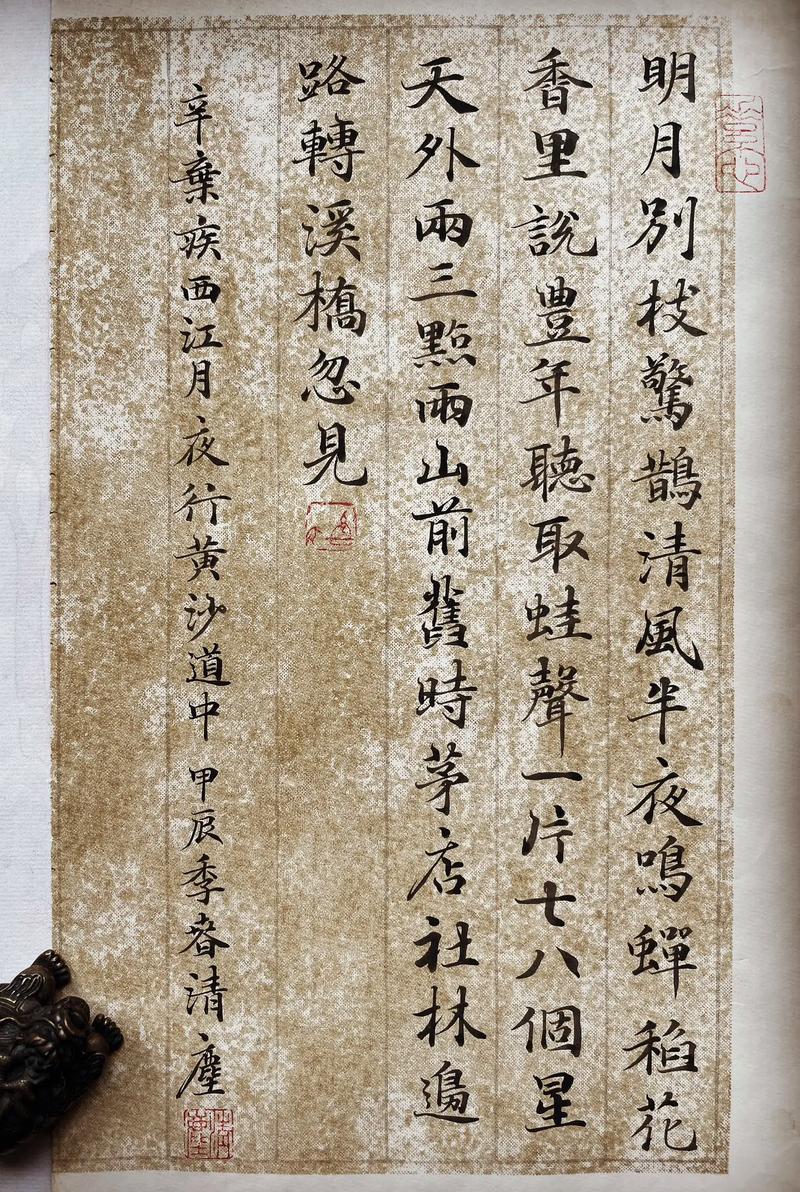 明月別枝驚鵲清風半夜鳴蟬稻花
香里說豐年聽取蛙聲一片七八個星
天外兩三點雨山前舊時茅店社林邊
路轉溪橋忽見
辛棄疾西江月夜行黃沙道中 甲辰季春清塵